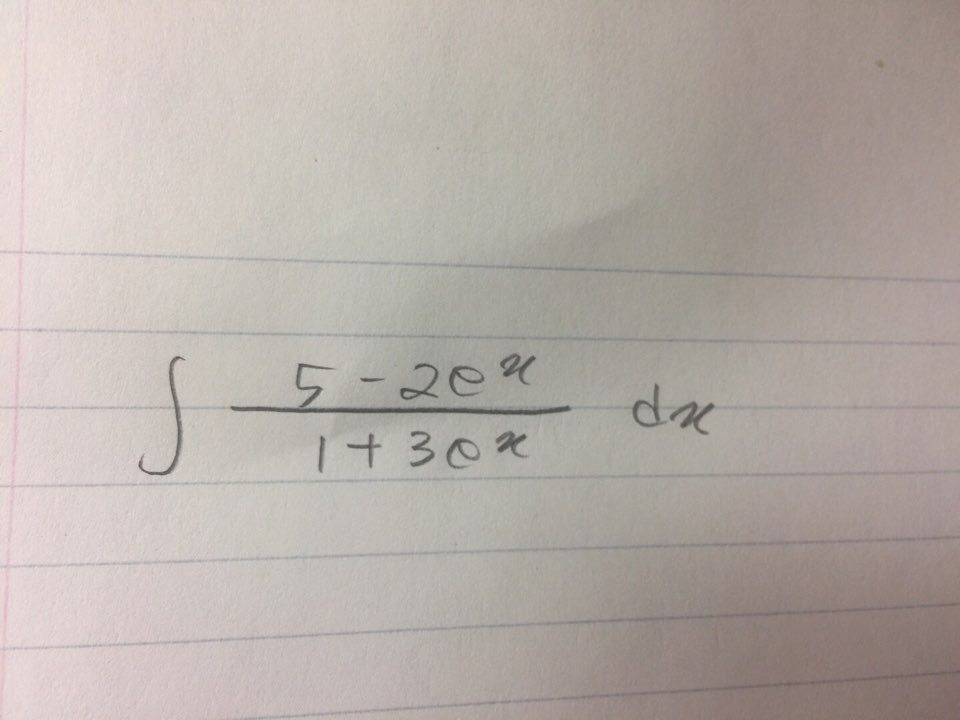 ∫ (5 - 2e^x)/(1 + 3e^x) dx